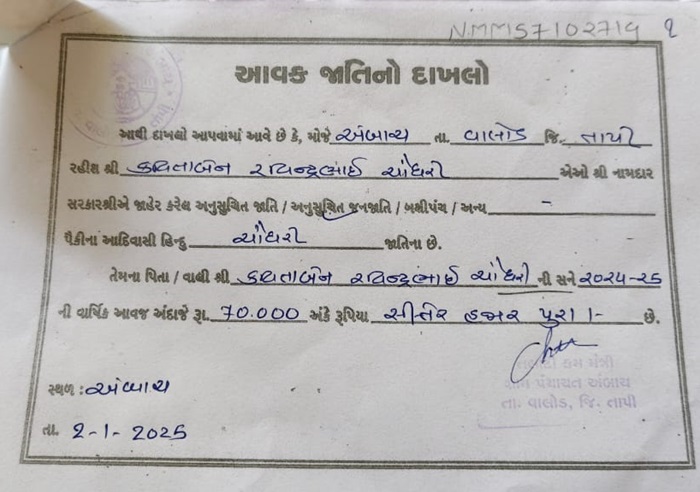 NMMS7102719 ૧
આવક જાતિનો દાખલો
આથી દાખલો આપવામાં આવે છે કે, મોજે અંબાચ તા. વાલોડ જિ. તાપી
રહીશ શ્રી કવિતાબેન રવિન્દ્રભાઈ ચૌધરી એઓ શ્રી નામદાર
સરકારશ્રીએ જાહેર કરેલ અનુસુચિત જાતિ / અનુસુચિત જનજાતિ / બક્ષીપંચ / અન્ય -
પૈકીના આદિવાસી હિન્દુ ચૌધરી જાતિના છે.
તેમના પિતા / વાલી શ્રી કવિતાબેન રવિન્દ્રભાઈ ચૌધરી ની સને ૨૦૨૪-૨૫
ની વાર્ષિક આવજ અંદાજે રૂા. 70.000 અંકે રૂપિયા સીત્તેર હજાર પુરા /- છે.
તલાટી કમ મંત્રી
ગ્રામ પંચાયત અંબાચ
તા. વાલોડ, જિ. તાપી
સ્થળ : અંબાચ
તા. ૨-1-2025